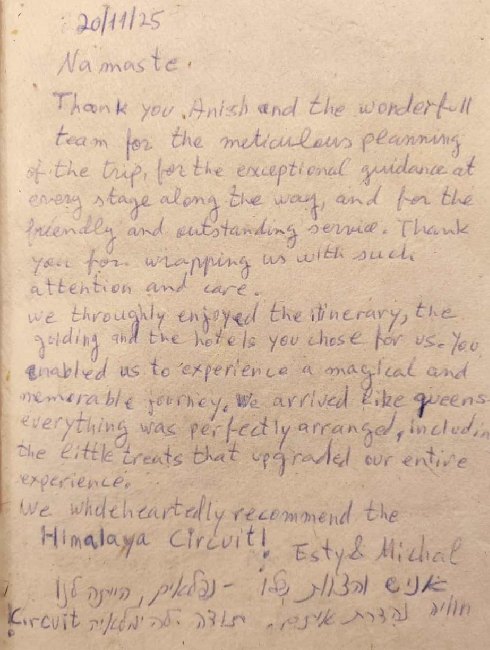 20/11/25
Namaste.
Thank you Anish and the wonderfull
team for the meticulous planning
of the trip, for the exceptional guidance at
every stage along the way, and for the
friendly and outstanding service. Thank
you for wrapping us with such
attention and care.
we throughly enjoyed the itinerary, the
guiding and the hotels you chose for us. You
enabled us to experience a magical and
memorable journey. We arrived like queens
everything was perfectly arranged, includin
the little treats that upgraded our entire
experience.
We wholeheartedly recommend the
Himalaya Circuit!
Esty & Michal
אניש והצוות שלו - נפלאים, הייתה לנו
חוויה נהדרת איתם. תודה
Circuit!